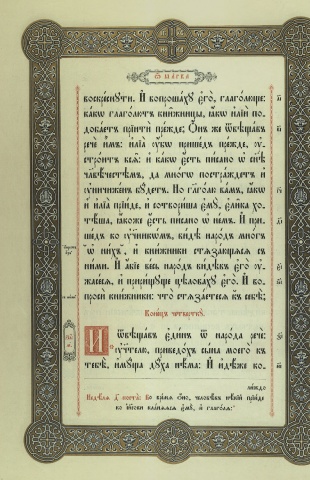 Ѿ ма́рка
воскре́снꙋти. И҆ вопроша́хꙋ є҆го̀, глаго́люще:
ка́кѡ глаго́лютъ кни́жницы, ꙗ҆́кѡ и҆лїѝ по-
доба́етъ прїитѝ пре́жде; Ѻ҆́нъ же ѿвѣща́въ
речѐ и҆̀мъ: и҆лїа̀ ᲂу҆́бѡ прише́дъ пре́жде, ᲂу҆-
стро́итъ всѧ̑: и҆ ка́кѡ є҆́сть пи́сано ѡ҆ сн҃ѣ
чл҃вѣ́честѣмъ, да мно́гѡ постра́ждетъ и҆
ᲂу҆ничиже́нъ бꙋ́детъ. Но гл҃ю ва́мъ, ꙗ҆́кѡ
и҆ и҆лїа̀ прїи́де, и҆ сотвори́ша є҆мꙋ̀, є҆ли̑ка хо-
тѣ́ша, ꙗ҆́коже є҆́сть пи́сано ѡ҆ не́мъ. И҆ при-
ше́дъ ко ᲂу҆чн҃кѡ́мъ, ви́дѣ наро́дъ мно́гъ
ѡ҆ ни́хъ, и҆ кни́жники стѧза́ющѧсѧ съ
ни́ми. И҆ а҆́бїе ве́сь наро́дъ ви́дѣвъ є҆го̀ ᲂу҆-
жасе́сѧ, и҆ пририща́юще цѣлова́хꙋ є҆го̀. И҆ во-
просѝ кни́жники: что̀ стѧза́етесѧ къ себѣ̀;
Коне́цъ четверткꙋ̀.
И҆ ѿвѣща́въ є҆ди́нъ ѿ наро́да речѐ:
ᲂу҆чт҃лю, приведо́хъ сы́на моего̀ къ
тебѣ̀, и҆мꙋ́ща дꙋ́ха нѣ́ма: И҆ и҆дѣ́же ко-
ли́ждо
Недѣ́лѧ д҃ поста̀: Во вре́мѧ ѻ҆́но, человѣ́къ нѣ́кїй прїи́де
ко і҆и҃сови кла́нѧѧсѧ є҆мꙋ̀, и҆ глаго́лѧ: